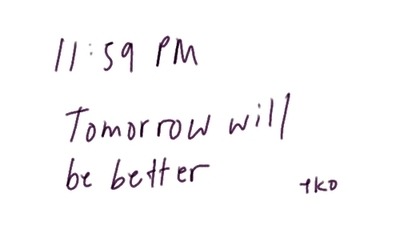 11:59 PM
Tomorrow will
be better
tko